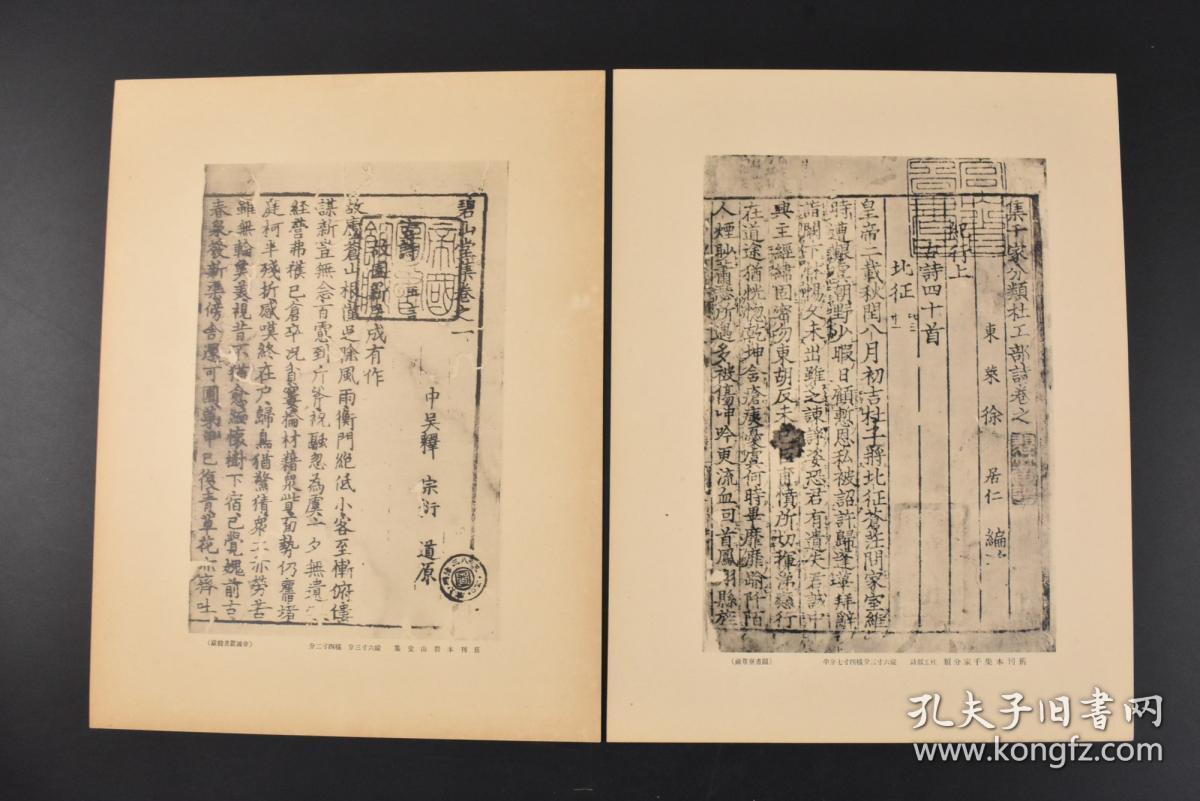 集千家分類杜工部詩卷之
東萊徐居仁編
紀行上
古詩四十首
北征
皇帝二載秋閏八月初吉杜子將北征蒼茫問家室維
時遭艱虞朝野少暇日顧慙恩私被詔許歸蓬蓽拜辭
詣闕下怵惕久未出雖乏諫諍姿恐君有遺失君誠中
興主經緯固密勿東胡反未 甫憤所切揮涕戀行
在道途猶恍惚乾坤含瘡痍憂虞何時畢靡靡踰阡陌
人煙眇蕭瑟所遇多被傷呻吟更流血回首鳳翔縣旌
舊刊本集千家分類杜工部詩 縱六寸三分橫四寸七分半
(圖書寮尊藏)
碧山堂集卷之一
中吳釋 宗衍 道原
古詩 五言
故園 成有作
故廬蒼山根僅足除風雨衡門絕低小客至慚俯僂
謀新豈無念百慮到斤斧祝融忽為虞一夕無遺
經營弗獲已倉卒況貧窶掄材藉衆 面勢仍舊堵
庭柯半殘折感嘆終在戶歸鳥猶驚猜衆 亦勞苦
雖無輪奐美視昔不猶愈緬懷樹下宿已覺媿前古
春泉 新 傍舍還可圃藥甲已復青草花亦齊吐
舊刊本碧山堂集 縱六寸三分 橫四寸二分
(帝國圖書館藏)
孔夫子旧书网
www.kongfz.com